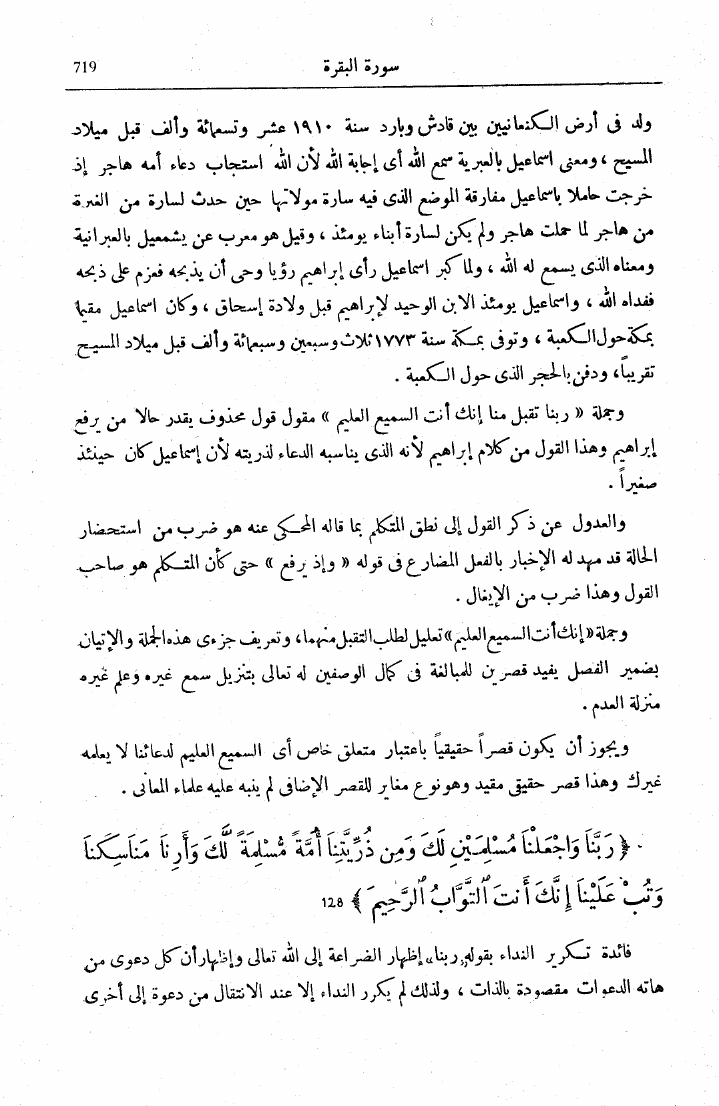 719
سورة البقرة
ولد فى أرض الكنعانيين بين قادش وبارد سنة ١٩١٠ عشر وتسعمائة وألف قبل ميلاد
المسيح ، ومعنى اسماعيل بالعبرية سمع الله أى إجابة الله لأن الله استجاب دعاء أمه هاجر إذ
خرجت حاملا باسماعيل مفارقة الموضع الذى فيه سارة مولاتها حين حدث لسارة من الغيرة
من هاجر لما حملت هاجر ولم يكن لسارة أبناء يومئذ ، وقيل هو معرب عن يشمعيل بالعبرانية
ومعناه الذى يسمع له الله ، ولما كبر اسماعيل رأى إبراهيم رؤيا وحى أن يذبحه فعزم على ذبحه
ففداه الله ، واسماعيل يومئذ الابن الوحيد لإبراهيم قبل ولادة إسحاق ، وكان اسماعيل مقيما
بمكة حول الكعبة ، وتوفى بمكة سنة ١٧٧٣ ثلاث وسبعين وسبعمائة وألف قبل ميلاد المسيح
تقريباً، ودفن بالحجر الذى حول الكعبة .
وجملة « ربنا تقبل منا إنك أنت السميع العليم » مقول قول محذوف يقدر حالا من يرفع
إبراهيم وهذا القول من كلام إبراهيم لأنه الذى يناسبه الدعاء لذريته لأن إسماعيل كان حينئذ
صغيراً .
والعدول عن ذكر القول إلى نطق المتكلم بما قاله المحكى عنه هو ضرب من استحضار
الحالة قد مهد له الإخبار بالفعل المضارع فى قوله « وإذ يرفع » حتى كأن المتكلم هو صاحب
القول وهذا ضرب من الإيغال .
وجملة «إنك أنت السميع العليم» تعليل لطلب التقبل منهما، وتعريف جزءى هذه الجملة والإتيان
بضمير الفصل يفيد قصرين للمبالغة فى كمال الوصفين له تعالى بتنزيل سمع غيره وعلم غيره
منزلة العدم .
ويجوز أن يكون قصراً حقيقياً باعتبار متعلق خاص أى السميع العليم لدعائنا لا يعلمه
غيرك وهذا قصر حقيقى مقيد وهو نوع مغاير للقصر الإضافى لم ينبه عليه علماء المعانى .
﴿ رَبَّنَا وَاجْعَلْنَا مُسْلِمَيْنِ لَكَ وَمِن ذُرِّيَّتِنَا أُمَّةً مُّسْلِمَةً لَّكَ وَأَرِنَا مَنَاسِكَنَا
وَتُبْ عَلَيْنَا إِنَّكَ أَنتَ ٱلتَّوَّابُ ٱلرَّحِيمُ ﴾ 128
فائدة تكرير النداء بقوله «ربنا» إظهار الضراعة إلى الله تعالى وإظهار أن كل دعوى من
هاته الدعوات مقصودة بالذات ، ولذلك لم يكرر النداء إلا عند الانتقال من دعوة إلى أخرى